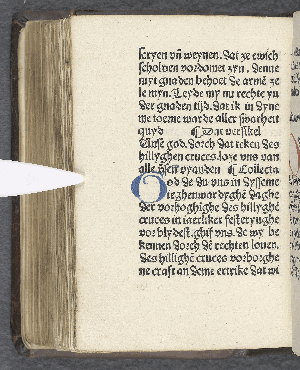 scryen vñ weynen. dat ze ewich
scholden vordomet zyn. denne
myt gnaden behoet de armē ze
le myn. Leyde my nu rechte yn
der gnaden tijd. dat ik in dyne
me torne werde aller swarheit
quyd ¶ Dat versikel
Unse god. dorch dat teken des
hillyghen cruces. loze vns van
alle vnsen vyanden ¶ Collecta
God de du vns in dysseme
ieghenwardyghē daghe
der vorhoghighe des hillyghē
cruces in iaerliker festeryughe
vorblydest. ghif vns. de wy be
kennen dorch dē rechten louen.
des hillighē cruces vorborghe
ne craft an deme ertrike dat wi